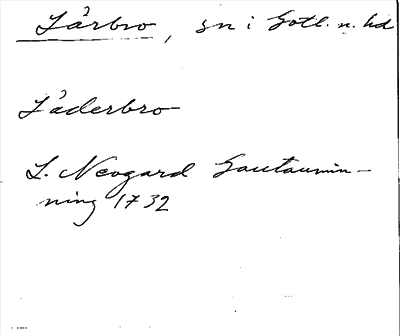 Lärbro, sn i Gotl. n. hd
Låderbro
L. Neogard Gautaumin-
ning 1732